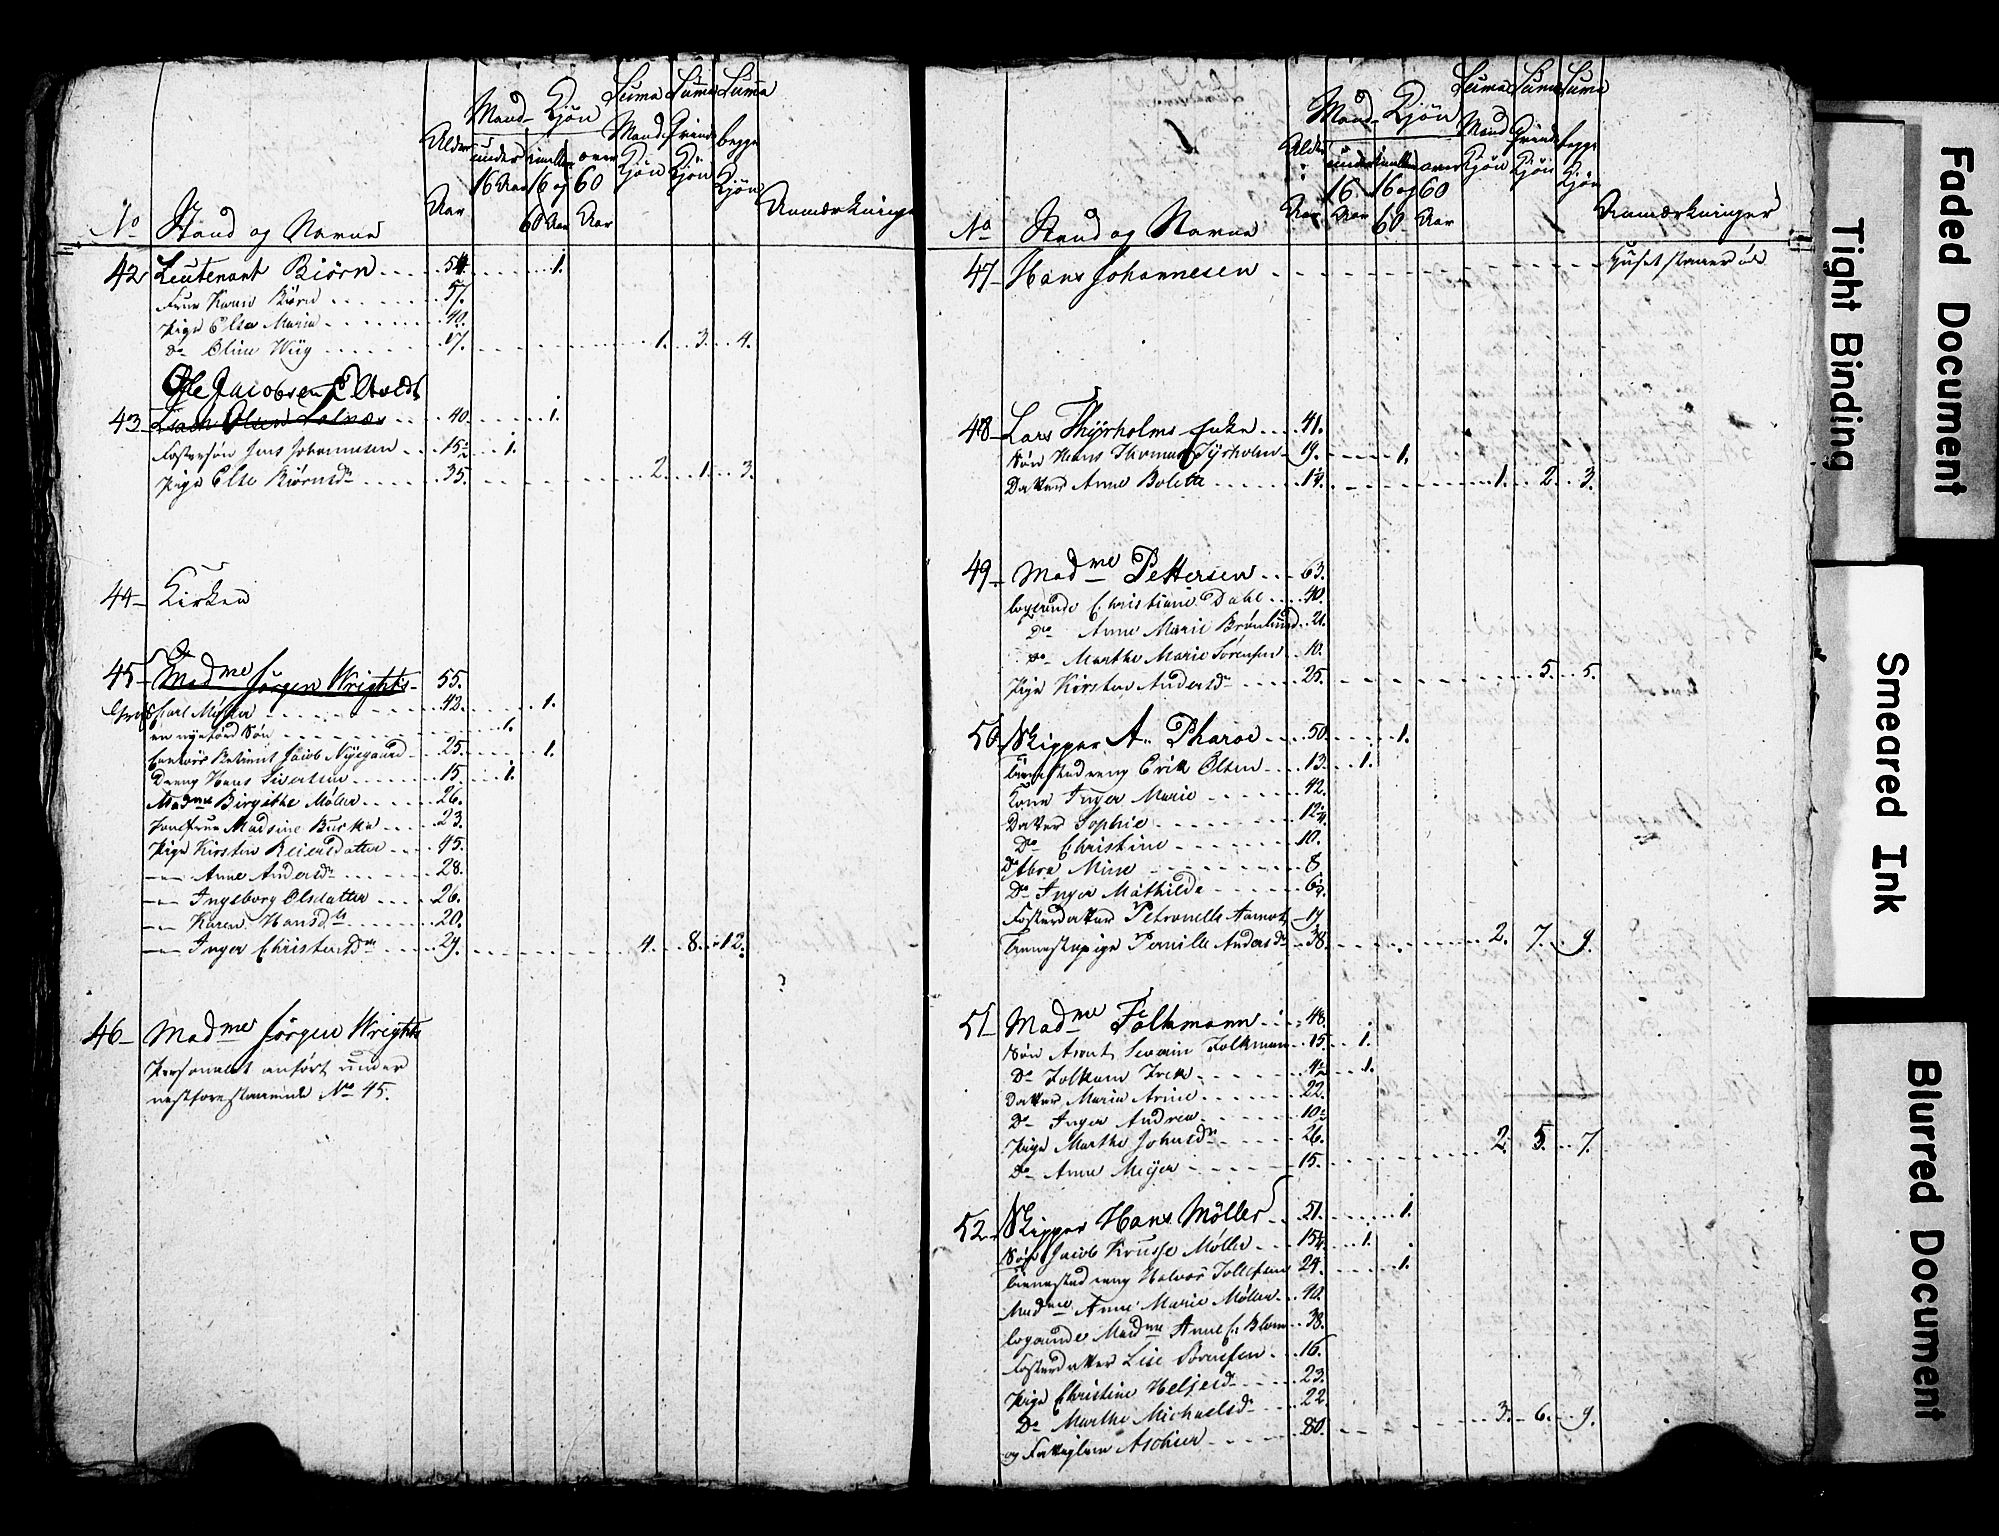 No Stand og Navne Alder Aar Mand-Kjøn under 16 Aar imellem 16 og 60 Aar over 60 Aar Suma Mand Kjøn Suma Qvinde Kjøn Suma begge Kjøn Anmærkninger
42 Leutenant Biörn 54. 1.
Frue Karen Biörn 57.
Pige Else Maria 40.
Do Oline Wiig 17. 1. 3. 4.
Ole Jacobsen
43 Isach Olsen 40. 1.
Fostersøn Jens Johannesen 15 1.
Pige Else Biörnsdr 35. 2. 1. 3.
44 Kirken
45 Madme Jörgen Wrights 55.
Carl Möller 42. 1.
en nyefød Søn 1.
Contoir Betient Jacob Nyegaard 25. 1.
Dreng Hans Sivertsen 15. 1.
Madme Birgithe Møller 26.
Jomfrue Madsine Buska 23.
Pige Kirsten Reiersdatter 45.
Anne Andersdr 28.
Ingeborg Olsdatter 26.
Karen Hansdtr 20.
Inger Christensdr 29. 4. 8. 12.
46 Madme Jörgen Wrights
Personalet anført under
næstforestaaende No 45.
No Stand og Navne Alder Aar Mand-Kjøn under 16 Aar imellem 16 og 60 Aar over 60 Aar Suma Mand Kjøn Suma Qvinde Kjøn Suma begge Kjøn Anmærkninger
47 Hans Johannesen Huset staaer öde
48 Lars Thyrholms Enke 41.
Søn Hans Thomas Tyrholm 19. 1.
Datter Anne Bolette 14. 1. 2. 3.
49 Madme Pettersen 63.
logerende Christiane Dahl 40.
Do Anne Marie Brönlund 21.
Do Marthe Marie Sörensen 10.
Pige Kirsten Andersdr 25. 5. 5.
50 Skipper A. Pharoe 50. 1.
Tienestedreng Erik Olsen 13. 1.
Kone Inger Marie 42.
Datter Sophie 12
Do Christine 10.
Do Abra Mine 8
Do Inger Mathilde 6
Fosterdatter Petronelle Aamot 19
Tienestepige Pernille Andersdr 38. 2. 7. 9.
51 Madme Folkmann 48.
Søn Arent Severin Folkman 15. 1.
Do Folkum Irek 4 1.
Datter Maria Arine 22.
Do Inger Andrea 10
Pige Marthe Johnsdr 26. 2. 5. 7.
Do Anne Meyer 15.
52 Skipper Hans Möller 51. 1.
Søn Jacob Krusse Møller 15 1.
Tienestedreng Halvor Tollefsen 24. 1.
Madme Anne Marie Møller 40.
logerende Madme Anne C. Blom 38.
Fosterdatter Lise Sörensen 16.
Pige Christine Helgesd 23.
Do Marthe Michaelsdr 22. 3. 6. 9.
og Fattiglem Aschier 80.
Faded Document
Tight Binding
Smeared Ink
Blurred Document